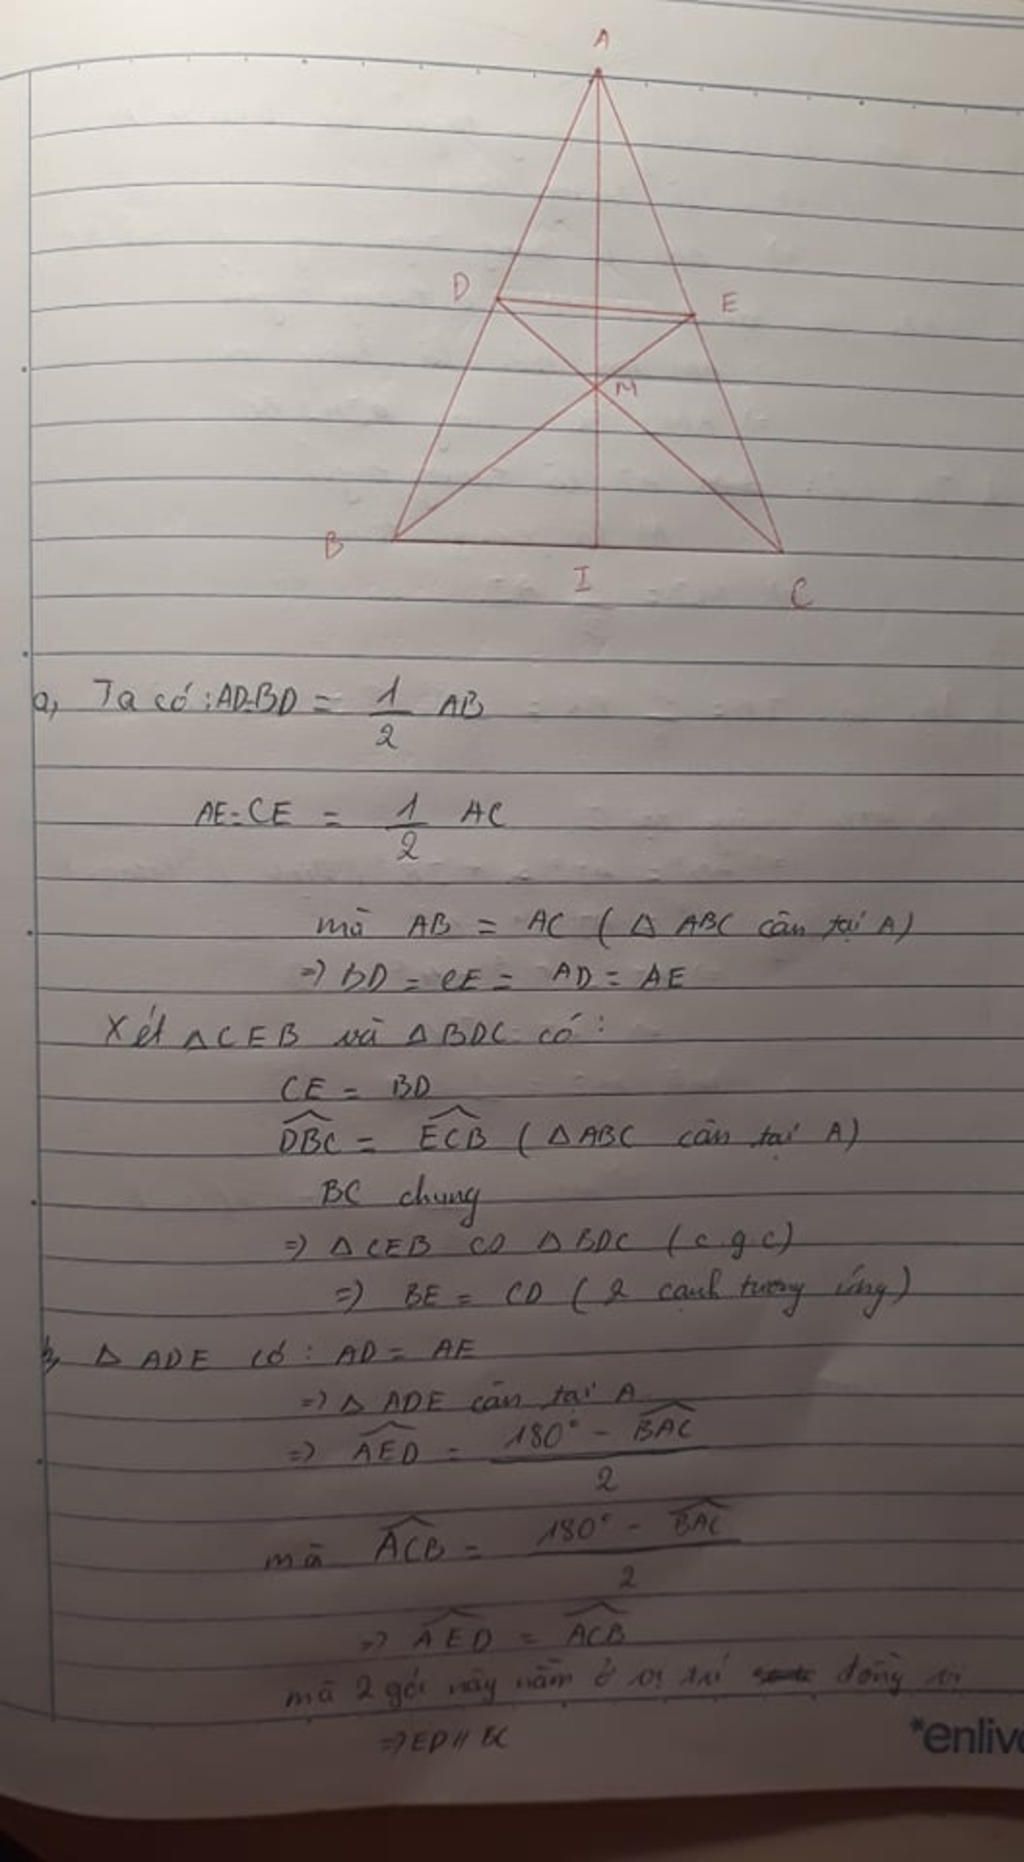 A
D
E
M
B
I
C
a, Ta có : AD=BD = 1/2 AB
AE=CE = 1/2 AC
mà AB = AC ( Δ ABC cân tại A)
=) BD = CE = AD = AE
Xét Δ CEB và Δ BDC có :
CE = BD
\widehat{DBC} = \widehat{ECB} ( Δ ABC cân tại A)
BC chung
=) Δ CEB co Δ BDC ( c.g.c)
=) BE = CD ( 2 cạnh tương ứng)
b, Δ ADE có : AD = AE
=) Δ ADE cân tại A
=) \widehat{AED} = (180° - \widehat{BAC})/2
mà \widehat{ACB} = (180° - \widehat{BAC})/2
=) \widehat{AED} = \widehat{ACB}
mà 2 góc này nằm ở vị trí đồng vị
=) ED // BC
*enliv